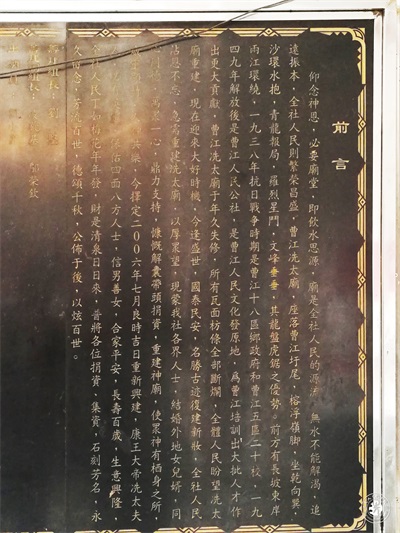 前言
仰念神恩，必要廟堂，即飲水思源，廟是全社人民的源流，無水不能解渴，追
遠振本，全社人民則繁榮昌盛，曹江冼太廟，座落曹江圩尾，榕浮嶺腳，坐乾向巽，
沙環水抱，青龍報局，羅烈星門，文峰垂垂，其龍盤虎鋸之優勢。前方有長坡東岸
兩江環繞，一九三八年抗日戰爭時期是曹江十八區鄉政府和曹江五區二十校，一九
四九年解放後是曹江人民公社，是曹江人民文化發原地，為曹江培訓出大批人才作
出更大貢獻，曹江冼太廟于年久失修，所有瓦面枋條全部斷爛，全體人民盼望冼太
廟重建，現在迎來大好時機，今逢盛世，國泰民安，名勝古迹復建新妝，全社人民
沾恩不忘，急需重建冼太廟，以厚眾望，現蒙我社各界人士，結婚外地女兒婿，同
心，鼎力支持，慷慨解囊帶頭捐資，重建神廟，使眾神有栖身之所，
今擇定二00六年七月良時吉日重新興建，康王大帝冼太夫
保佑四面八方人士，信男善女，合家平安，長壽百歲，生意興隆，
人民丁如枋花年年發，財是清泉日日來，普將各位捐資、集資，石刻芳名，永
久思念，芳流百世，德頌千秋，公佈于後，以炫百世。
榮欽